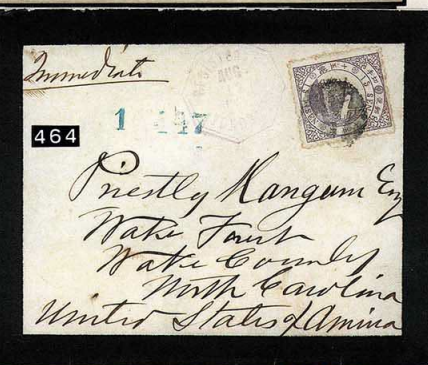 Immediate
AUG
1 147
464
Priestly Mangum Esq
Wake Forest
Wake County
North Carolina
United States of America